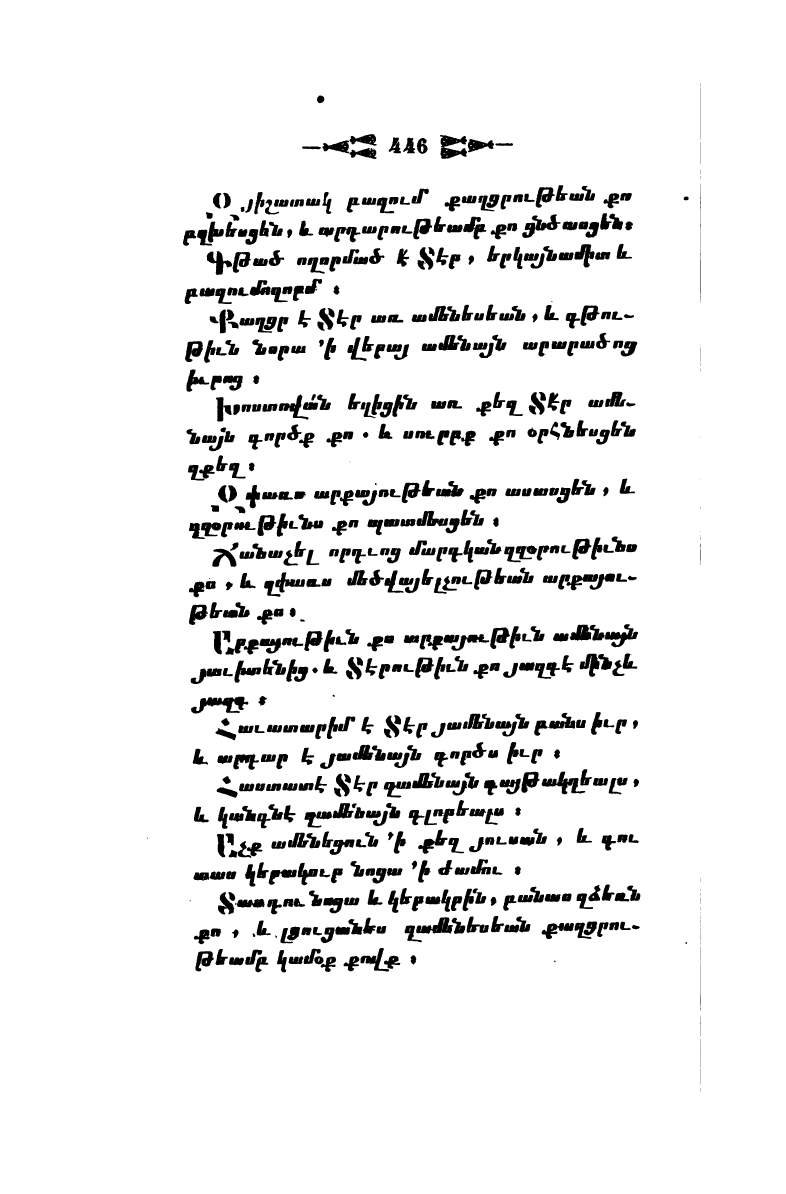 446
Զյիշատակ բազում քաղցրութեան քո
բղխեսցեն, և արդարութեամբ քո ցնծասցեն։
Գթած ողորմած է Տէր, երկայնամիտ և
բազումողորմ ։
Քաղցր է Տէր առ ամենեսեան, և գթու-
թիւն նորա ՚ի վերայ ամենայն արարածոց
իւրոց ։
Խոստովան եղիցին առ քեզ Տէր ամե-
նայն գործք քո . և սուրբք քո օրհնեսցեն
զքեզ ։
Զփառս արքայութեան քո ասասցեն, և
զզօրութիւնս քո պատմեսցեն ։
Ճանաչել որդւոց մարդկան զզօրութիւնս
քո, և զփառս մեծվայելչութեան արքայու-
թեան քո ։
Արքայութիւն քո արքայութիւն ամենայն
յաւիտենից . և Տէրութիւն քո յազգէ մինչև
յազգ ։
Հաւատարիմ է Տէր յամենայն բանս իւր,
և արդար է յամենայն գործս իւր ։
Հաստատէ Տէր զամենայն գայթակղեալս,
և կանգնէ զամենայն գլորեալս ։
Աչք ամենեցուն ՚ի քեզ յուսան, և դու
տաս կերակուր նոցա ՚ի ժամու ։
Տաս դու նոցա և կերակրին, բանաս զձեռն
քո, և լցուցանես զամենեսեան քաղցրու-
թեամբ կամօք քովք ։